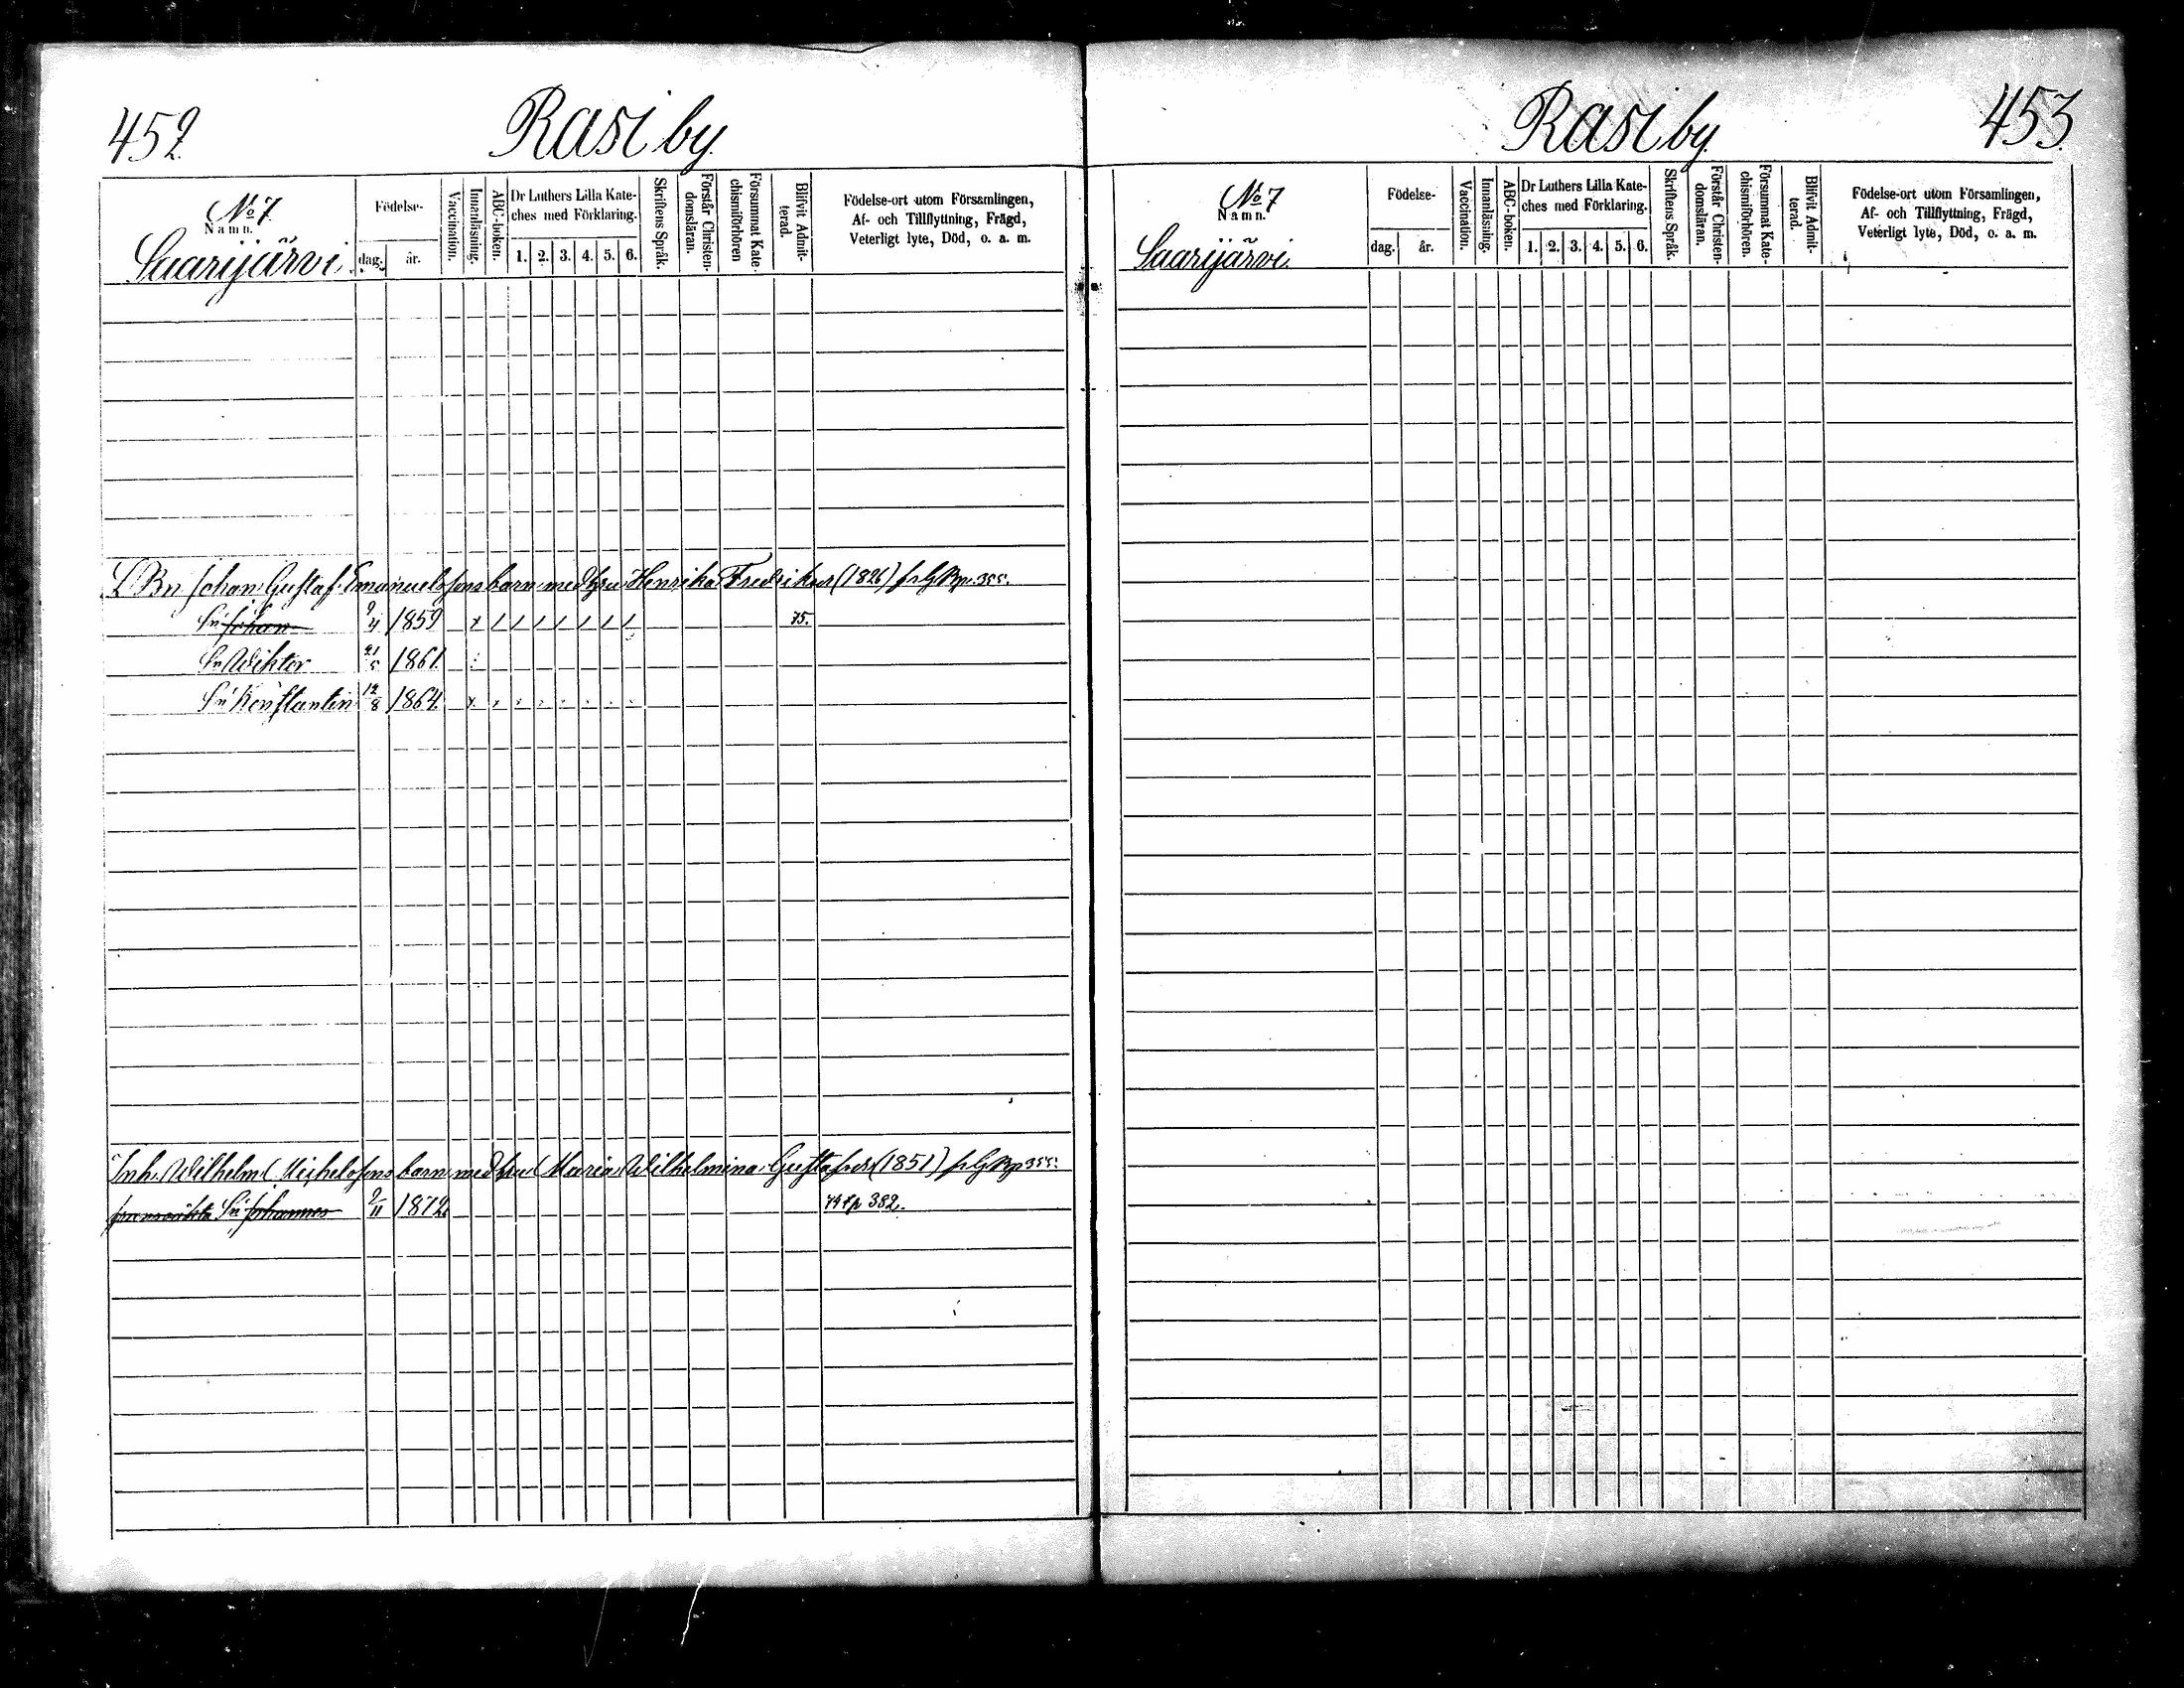 452. Rasi by
No 7. Namn. Saarijärvi.
Födelse- dag. år.
Vaccination.
Innanläsning.
ABC-boken.
Dr Luthers Lilla Kate-
ches med Förklaring.
1. 2. 3. 4. 5. 6.
Skriftens Språk.
Förstår Christen-
domsläran.
Försummat Kate-
chismiförhören
Blifvit Admit-
terad.
Födelse-ort utom Församlingen,
Af- och Tillflyttning, Frägd,
Veterligt lyte, Död, o. a. m.
Bn Johan Gustaf Emanuelssons barn med hru Henrika Fredriksdr (1826) fr G Bp. 355.
Sn Johan 9/4 1859 x / / / / / / / 75.
Sn Wiktor 21/5 1861.
Sn Konstantin 12/8 1864.
Inh. Wilhelm Michelssons barn med hru Maria Wilhelmina Gustafsdr (1851) fr G Bp 355.
Sn Johannes 2/11 1872. 382.
Rasi by 453.
No 7 Namn. Saarijärvi.
Födelse- dag. år.
Vaccination.
Innanläsning.
ABC-boken.
Dr Luthers Lilla Kate-
ches med Förklaring.
1. 2. 3. 4. 5. 6.
Skriftens Språk.
Förstår Christen-
domsläran.
Försummat Kate-
chismiförhören.
Blifvit Admit-
terad.
Födelse-ort utom Församlingen,
Af- och Tillflyttning, Frägd,
Veterligt lyte, Död, o. a. m.